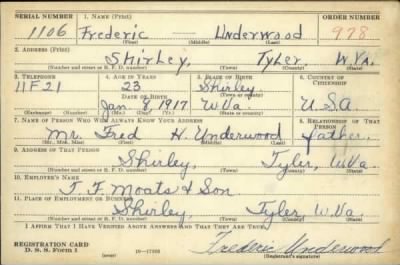 SERIAL NUMBER 1. NAME (Print) ORDER NUMBER
1106 Frederic Underwood 978
(First) (Middle) (Last)
2. ADDRESS (Print)
Shirley, Tyler W.Va.
(Number and street or R. F. D. number) (Town) (County) (State)
3. TELEPHONE 4. AGE IN YEARS 5. PLACE OF BIRTH 6. COUNTRY OF CITIZENSHIP
11F21 23 Shirley
DATE OF BIRTH (Town or county)
Jan 8, 1917 W.Va. U.S.A
(Exchange) (Number) (Mo.) (Day) (Yr.) (State or country)
7. NAME OF PERSON WHO WILL ALWAYS KNOW YOUR ADDRESS 8. RELATIONSHIP OF THAT PERSON
Mr. Fred H. Underwood father.
(Mr., Mrs., Miss) (First) (Middle) (Last)
9. ADDRESS OF THAT PERSON
Shirley, Tyler, W.Va.
(Number and street or R. F. D. number) (Town) (County) (State)
10. EMPLOYER'S NAME
T. F. Moats & Son
11. PLACE OF EMPLOYMENT OR BUSINESS
Shirley Tyler W.Va.
(Number and street or R. F. D. number) (Town) (County) (State)
I AFFIRM THAT I HAVE VERIFIED ABOVE ANSWERS AND THAT THEY ARE TRUE.
REGISTRATION CARD
D. S. S. Form 1 Frederic Underwood
(Registrant's signature)